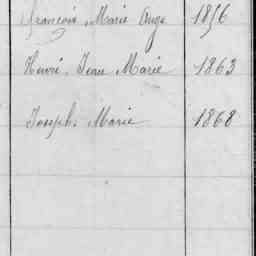 François, Marie Ange 1856
Henri, Jean Marie 1863
Joseph, Marie 1868